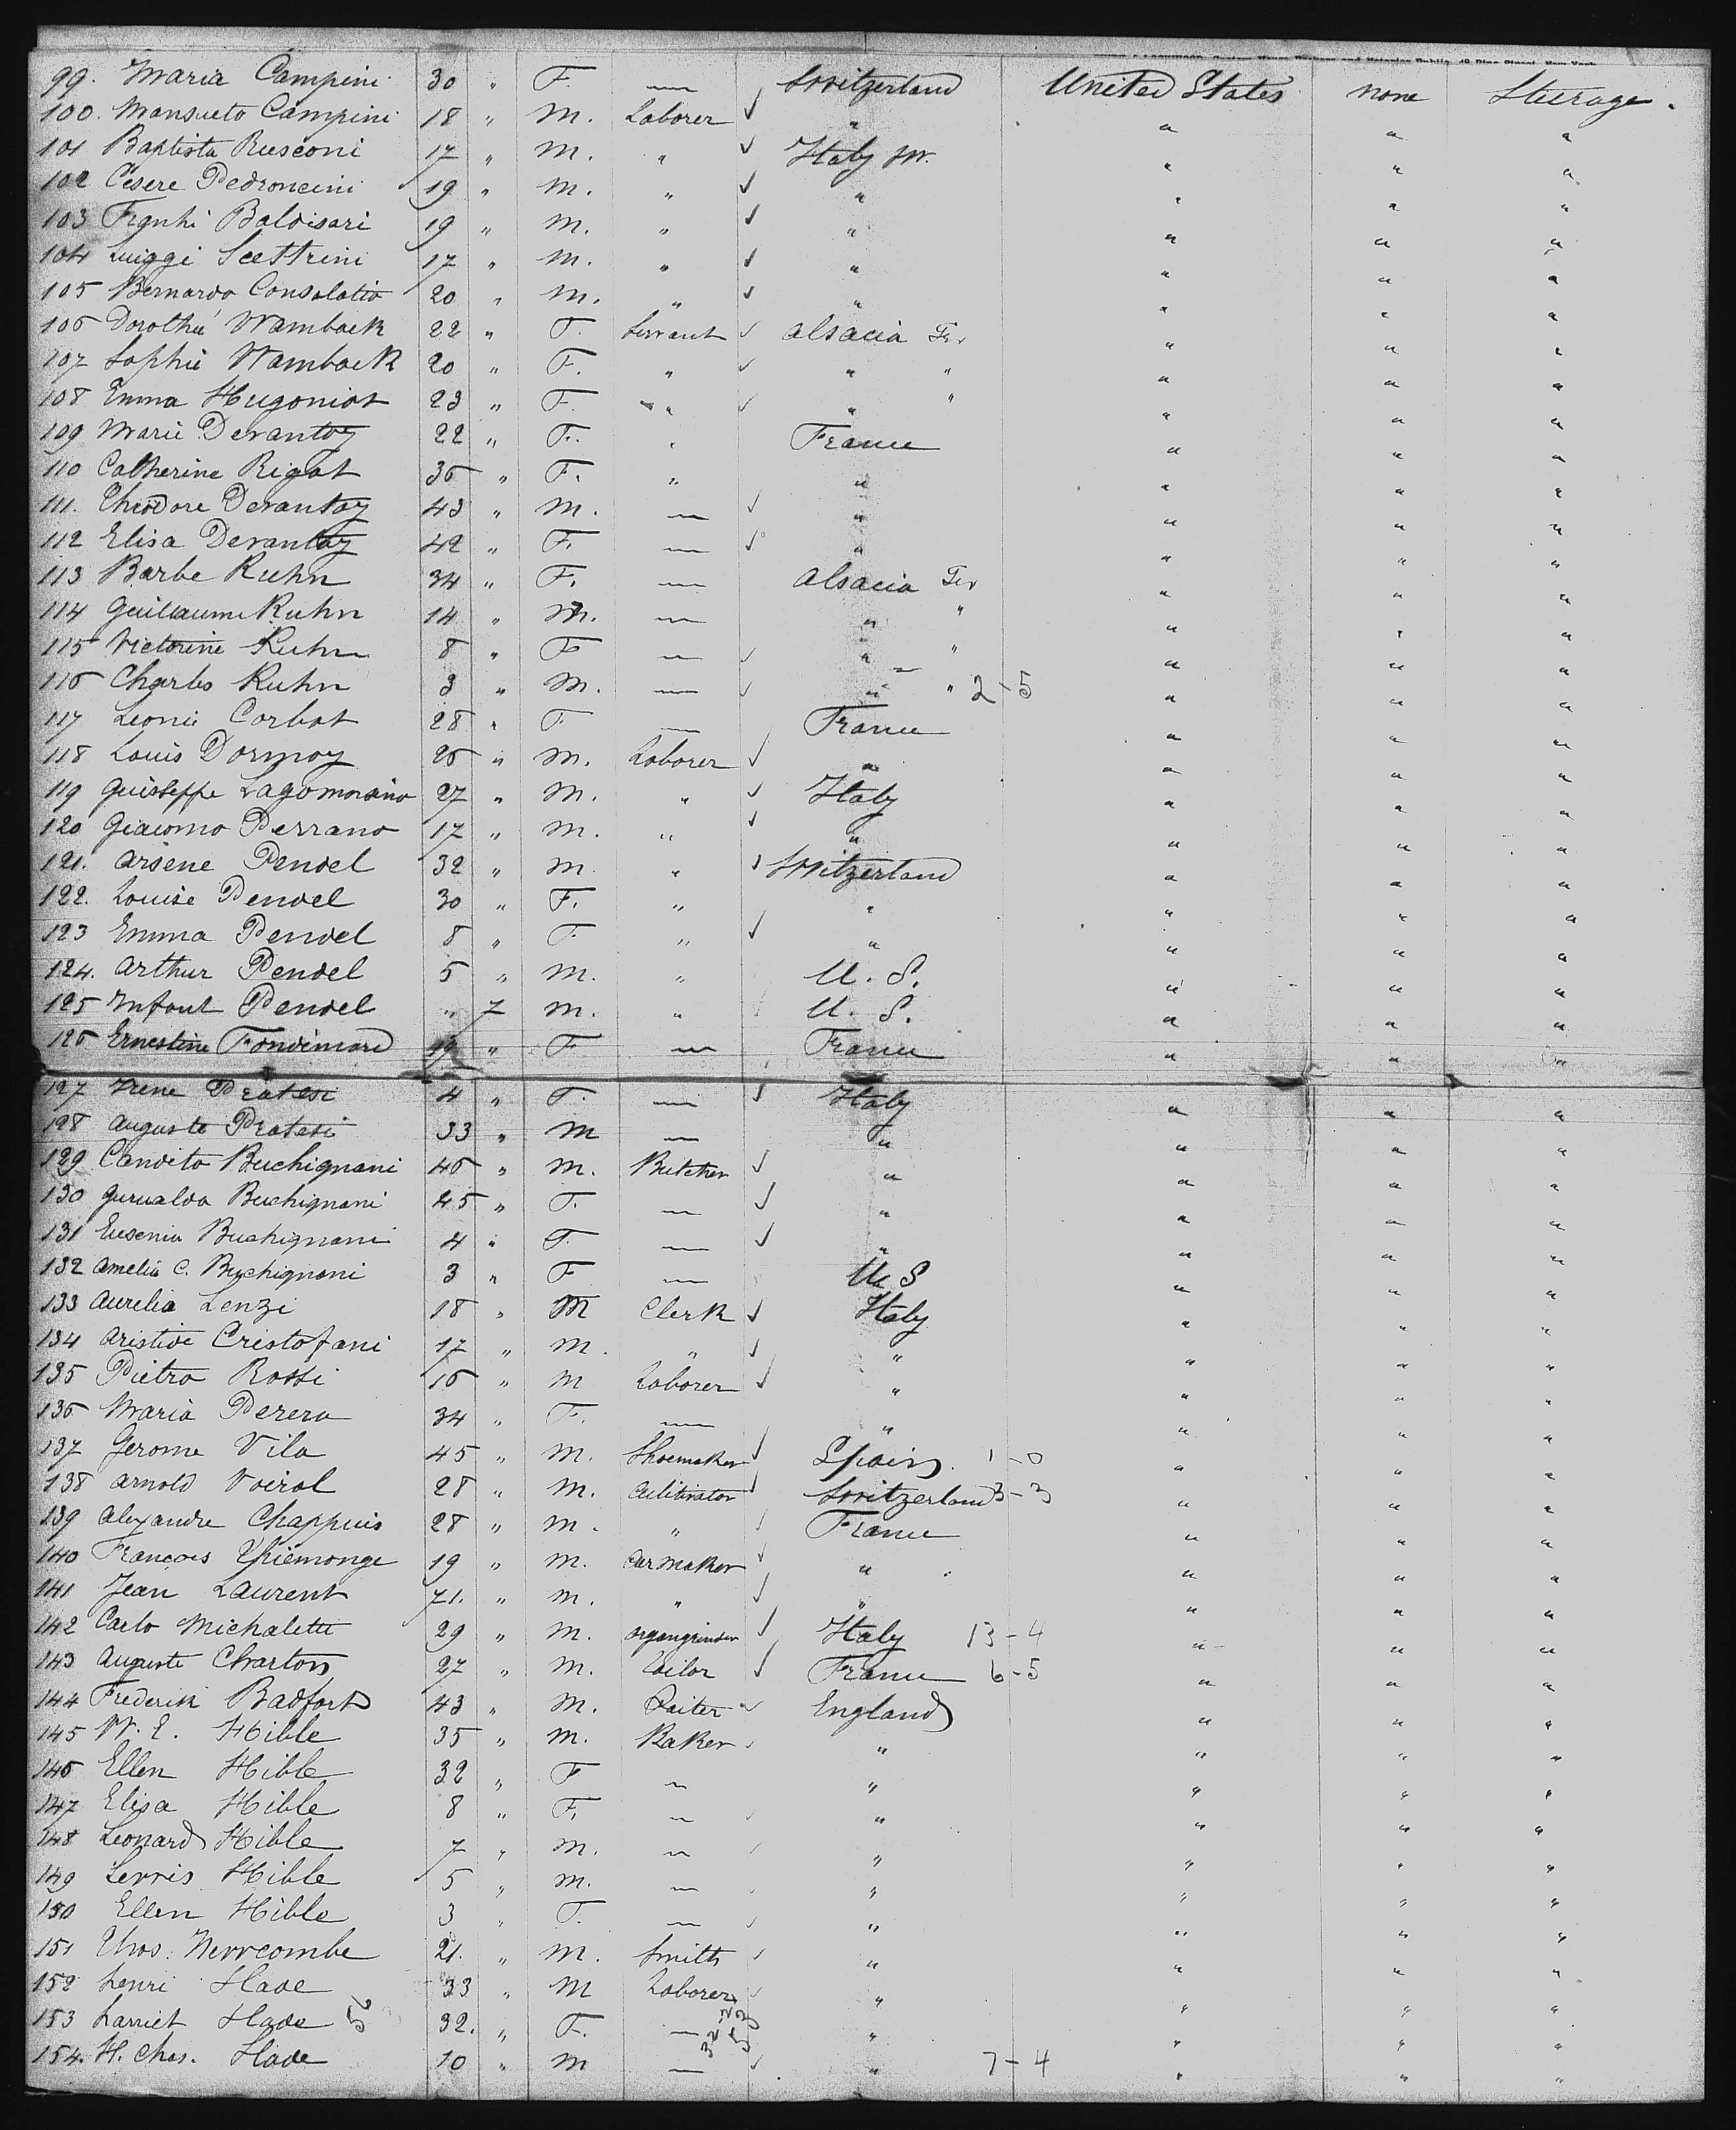 99. Maria Campini 30 " F. — Switzerland United States none Steerage.
100. Mansueto Campini 18 " M. Laborer ✓ " " " "
101 Baptista Rusconi 17 " M. " ✓ Italy " " "
102 Cesere Pedroncini 19 " M. " ✓ " " " "
103 Baldisari 19 " M. " ✓ " " " "
104 Luiggi Scettrini 17 " M. " ✓ " " " "
105 Bernardo Consolatio 20 " M. " ✓ " " " "
106 Dorothé Wamback 22 " F. Servant ✓ Alsacia Ger " " "
107 Sophie Wamback 20 " F. " ✓ " " " " "
108 Emma Hugoniot 23 " F. " ✓ " " " " "
109 Marie Devantoy 22 " F. " France " " "
110 Catherine Rigot 36 " F. " " " " "
111. Théodore Devantoy 43 " M. — ✓ " " " "
112 Elisa Devantoy 42 " F. — ✓ " " " "
113 Barbe Kuhn 34 " F. — Alsacia Ger " " "
114 Guillaume Kuhn 14 " M. — " " " " "
115 Victorine Kuhn 8 " F — ✓ " " " " "
116 Charles Kuhn 3 " M. — ✓ " " 2-5 " " "
117 Leonie Corbat 28 " F — France " " "
118 Louis Dormoy 26 " M. Laborer ✓ " " " "
119 Guiseppe Lagomarsino 27 " M. " ✓ Italy " " "
120 Giacomo Perrano 17 " M. " ✓ " " " "
121. Arsene Pendel 32 " M. " ✓ Switzerland " " "
122. Louise Pendel 30 " F. " " " " "
123 Emma Pendel 8 " F " ✓ " " " "
124. Arthur Pendel 5 " M. " U. S. " " "
125 Infant Pendel " 7 M. " U. S. " " "
126 Ernestine Fondimare 49 " F — France " " "
127 Irene Pratesi 4 " F. — ✓ Italy " " "
128 Auguste Pratesi 33 " M — " " " "
129 Candito Buchignani 46 " M. Butcher ✓ " " " "
130 Buchignani 45 " F. — ✓ " " " "
131 Eusenia Buchignani 4 " F — ✓ " " " "
132 Amelia C. Buchignani 3 " F — U. S " " "
133 Aurelia Lenzi 18 " M Clerk ✓ Italy " " "
134 Aristide Cristofani 17 " M. " ✓ " " " "
135 Pietro Rossi 16 " M Laborer ✓ " " " "
136 Maria Perera 34 " F. — " " " "
137 Jerome Vila 45 " M. Shoemaker ✓ Spain. 1-0 " " "
138 Arnold Voirol 28 " M. Cultivator ✓ Switzerland 3-3 " " "
139 Alexandre Chappuis 28 " M. " ✓ France " " "
140 Francois 19 " M. Carmaker ✓ " " " "
141 Jean Laurent 71. " M. " ✓ " " " "
142 Carlo Michalette 29 " M. Organgrinder ✓ Italy 13-4 " " "
143 Auguste Charton 27 " M. Tailor ✓ France 6-5 " " "
144 Frederik Badford 43 " M. ✓ England " " "
145 W. E. Hible 35 " M. Baker ✓ " " " "
146 Ellen Hible 32 " F — " " " "
147 Elisa Hible 8 " F. — " " " "
148 Leonard Hible 7 " M. — " " " "
149 Lewis Hible 5 " M. — " " " "
150 Ellen Hible 3 " F. — ✓ " " " "
151 Thos. Newcombe 21. " M. Smith ✓ " " " "
152 Henri Slade 33 " M Laborer ✓ " " " "
153 Harriet Slade 56 32. " F. — " " " "
154. H. Chas. Slade 10 " M — ✓ " 7-4 " " "